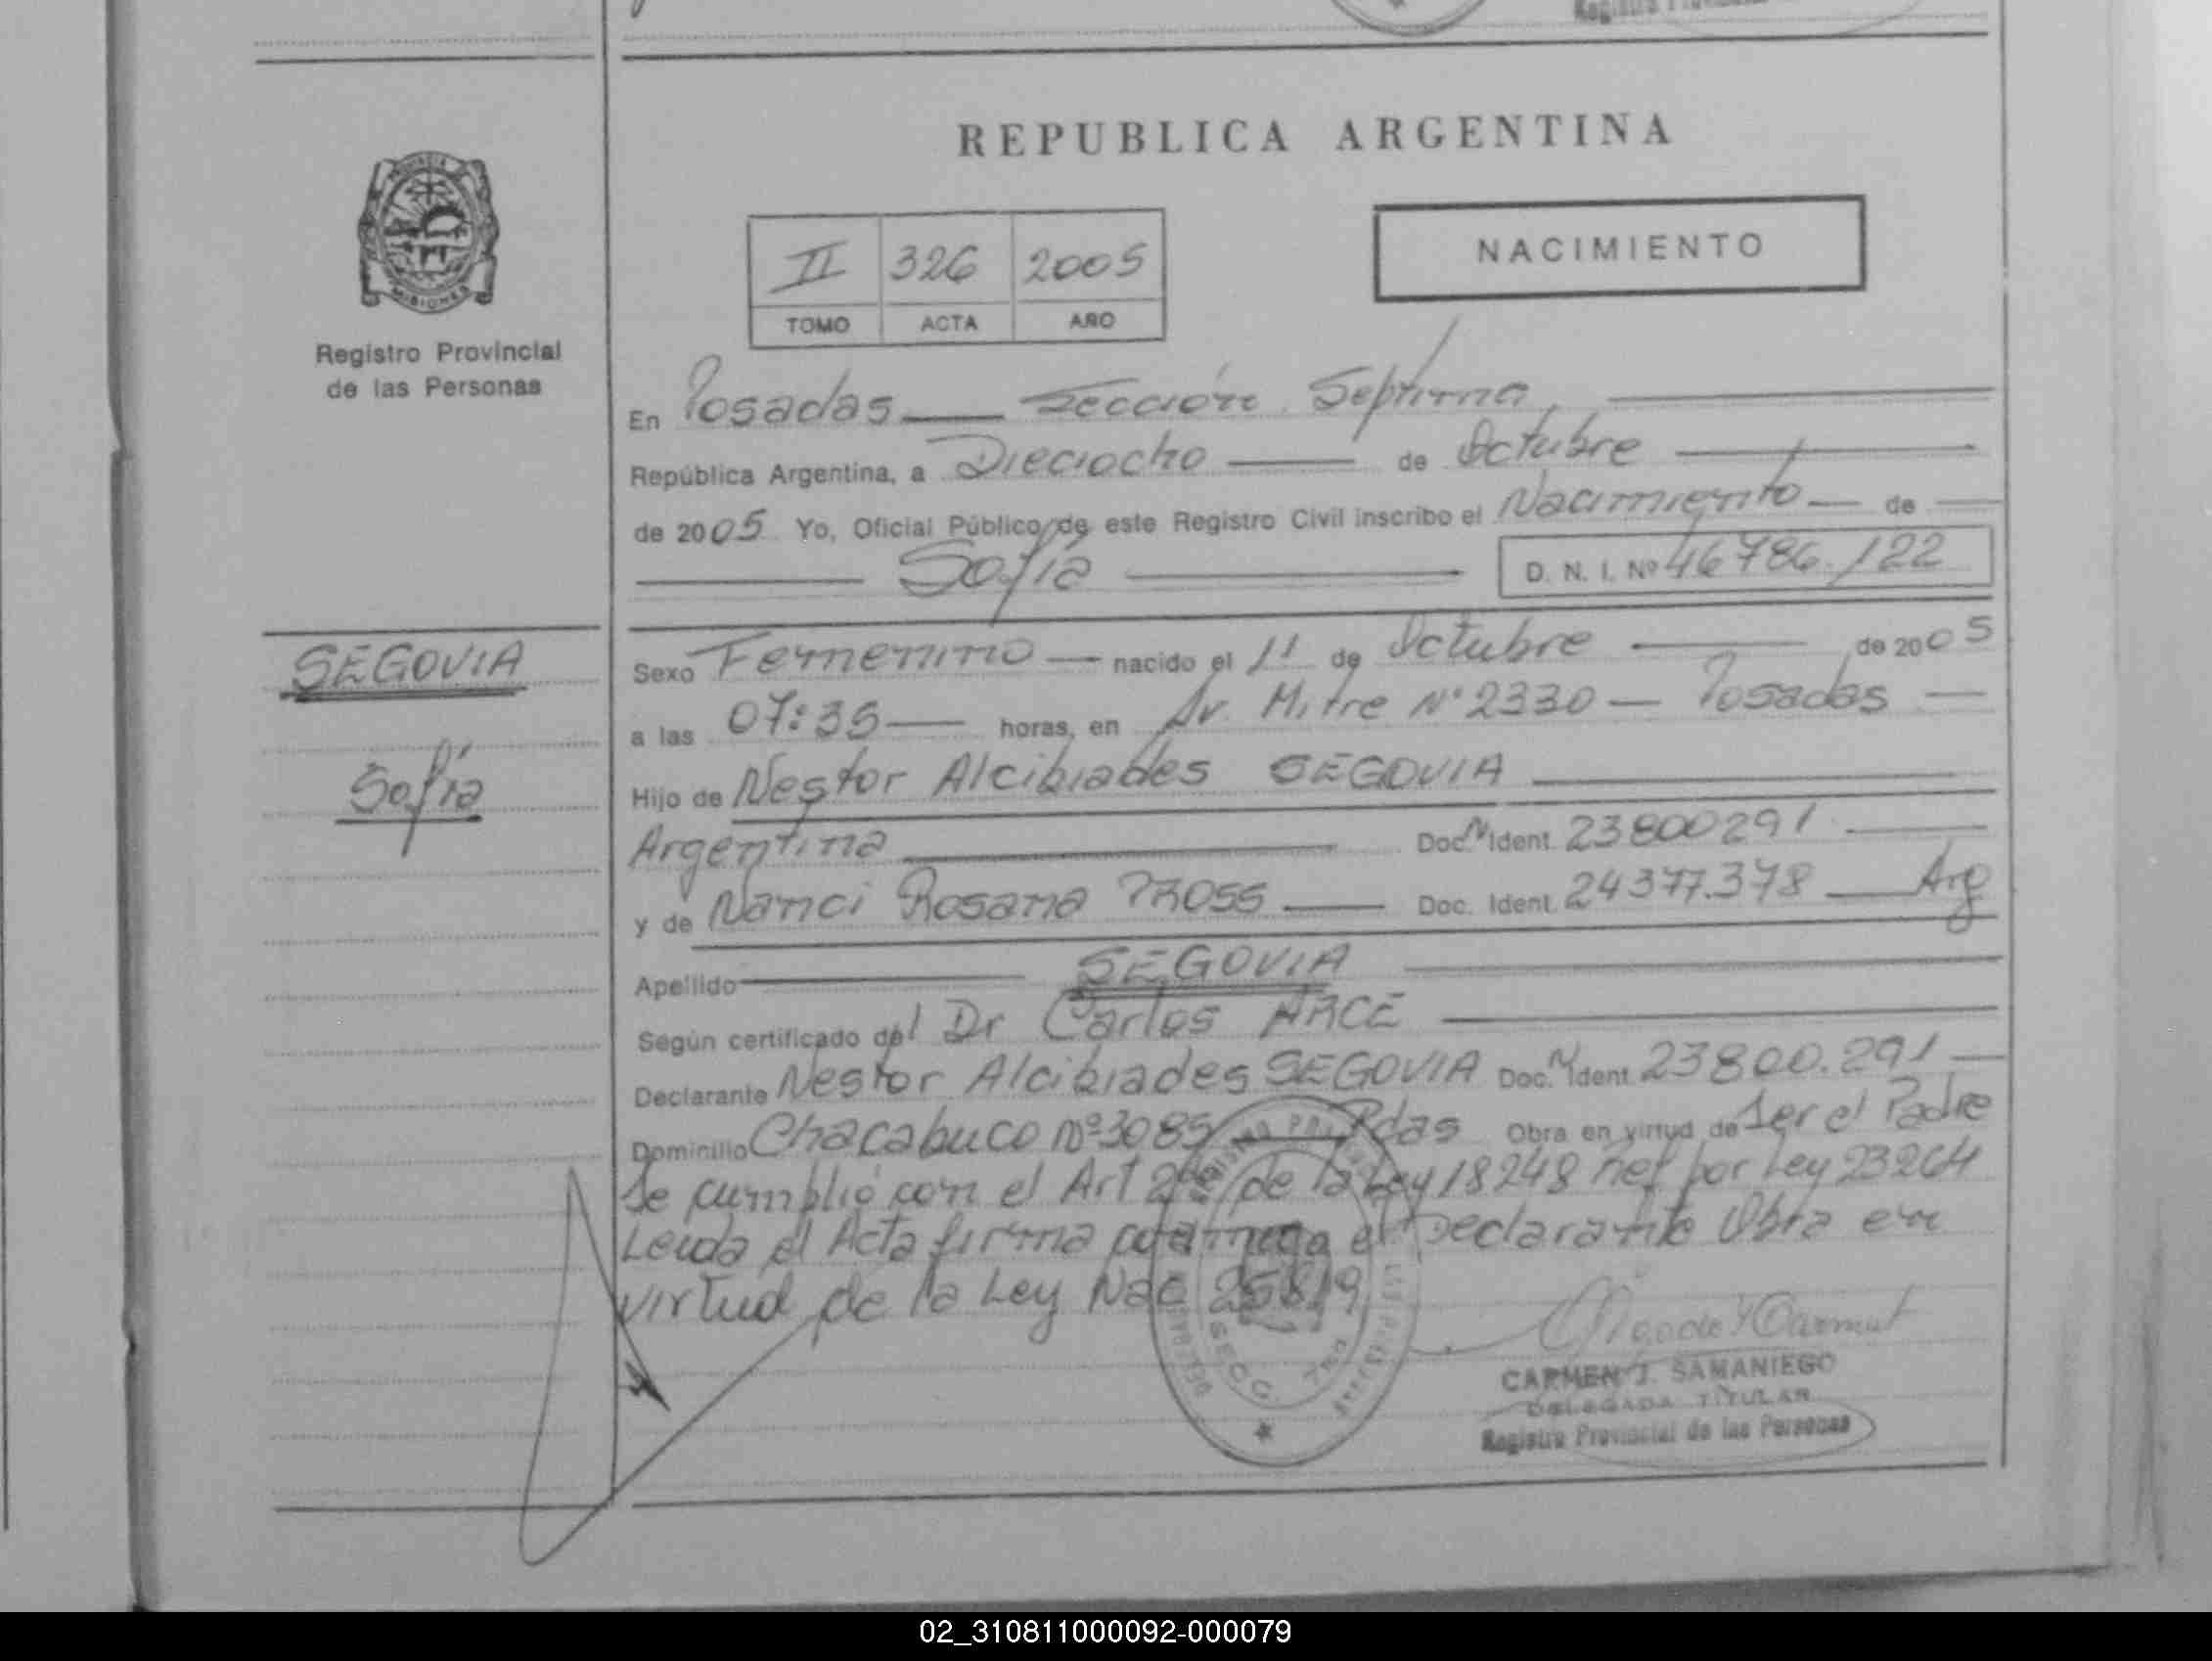 REPUBLICA ARGENTINA
PROVINCIA
MISIONES
Registro Provincial
de las Personas
NACIMIENTO
II 326 2005
TOMO ACTA AÑO
En Posadas Sección Septima,
República Argentina, a Dieciocho de Octubre
de 2005 Yo, Oficial Público de este Registro Civil inscribo el Nacimiento de
Sofía D. N. I. Nº 46786.122
SEGOVIA
Sofía
Sexo Femenino nacido el 11 de Octubre de 2005
a las 07:35 horas, en Av. Mitre Nº 2330 — Posadas
Hijo de Nestor Alcibiades SEGOVIA
Argentina Doc. N Ident 23800291
y de Nanci Rosana Doc. Ident 24377.378 Arg
Apellido SEGOVIA
Según certificado del Dr Carlos ARCE
Declarante Nestor Alcibiades SEGOVIA Doc. N Ident 23800.291
Domicilio Chacabuco Nº 3085 Pdas Obra en virtud de Ser el Padre
Se cumplió con el Art 2 de la Ley 18248 por Ley 23264
Leida el Acta firma conmigo el Declarante Obra en
virtud de la Ley Nac 25819
SECC. 7ma
CARMEN J. SAMANIEGO
DELEGADA TITULAR
Registro Provincial de las Personas
02_310811000092-000079